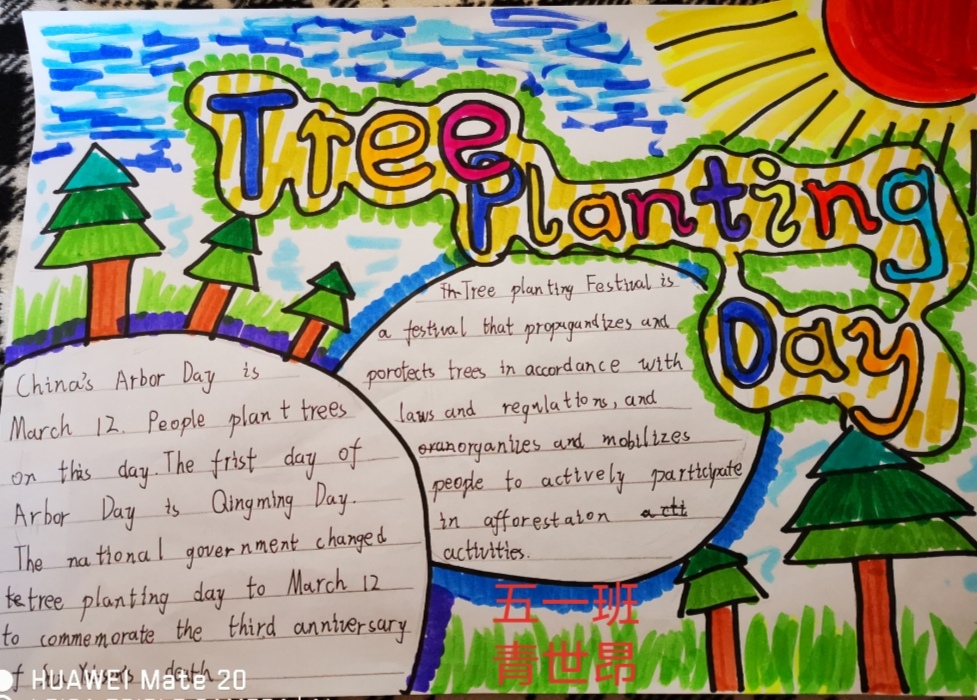 Tree
Planting
Day
China's Arbor Day is
March 12. People plant trees
on this day. The frist day of
Arbor Day is Qingming Day.
The national government changed
te tree planting day to March 12
to commemorate the third anniversary
death
th Tree planting Festival is
a festival that propagandizes and
porotects trees in accordance with
laws and regulations, and
oran organizes and mobilizes
people to actively participate
in afforestaion acti
activities.
五一班
青世昂
HUAWEI Mate 20